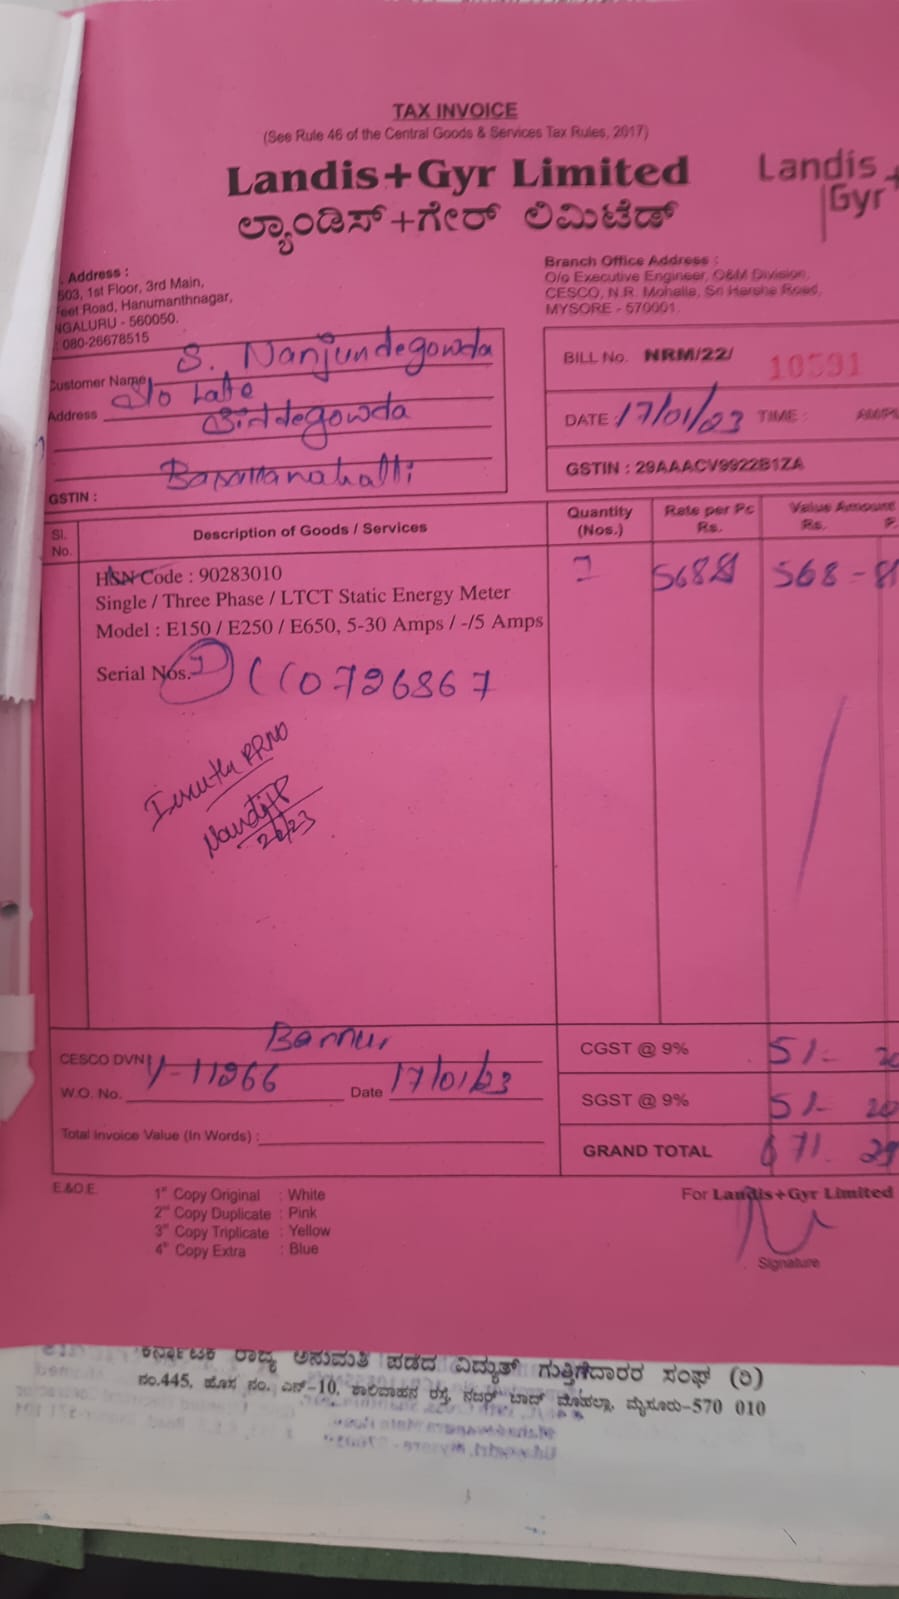 TAX INVOICE
(See Rule 46 of the Central Goods & Services Tax Rules, 2017)
Landis+Gyr Limited
ಲ್ಯಾಂಡಿಸ್+ಗೇರ್ ಲಿಮಿಟೆಡ್
Landis
Gyr+
. Address :
503, 1st Floor, 3rd Main,
eet Road, Hanumanthnagar,
NGALURU - 560050.
: 080-26678515
Branch Office Address :
O/o Executive Engineer, O&M Division,
CESCO, N.R. Mohalla, Sri Harsha Road,
MYSORE - 570001.
Customer Name S. Nanjundegowda
Address S/o Late
Siddegowda
GSTIN :
BILL No. NRM/22/ 10591
DATE : 17/01/23 TIME : AM/P
GSTIN : 29AAACV9922B1ZA
Sl. No. Description of Goods / Services Quantity (Nos.) Rate per Pc Rs. Value Amount Rs. P.
HSN Code : 90283010 1 568-81
Single / Three Phase / LTCT Static Energy Meter
Model : E150 / E250 / E650, 5-30 Amps / -/5 Amps
Serial Nos. 1)
CESCO DVN Bannur
W.O. No. Y-11266 Date 17/01/23
Total Invoice Value (In Words) :
CGST @ 9% 51- 20
SGST @ 9% 51- 20
GRAND TOTAL 671.
E.&O.E.
1st Copy Original : White
2nd Copy Duplicate : Pink
3rd Copy Triplicate : Yellow
4th Copy Extra : Blue
For Landis+Gyr Limited
Signature
ಕರ್ನಾಟಕ ರಾಜ್ಯ ಅನುಮತಿ ಪಡೆದ ವಿದ್ಯುತ್ ಗುತ್ತಿಗೆದಾರರ ಸಂಘ (ರಿ)
ನಂ.445, ಹೊಸ ನಂ. ಎನ್-10, ಶಾಲಿವಾಹನ ರಸ್ತೆ, ನಜರ್ ಬಾದ್ ಮೊಹಲ್ಲಾ, ಮೈಸೂರು-570 010